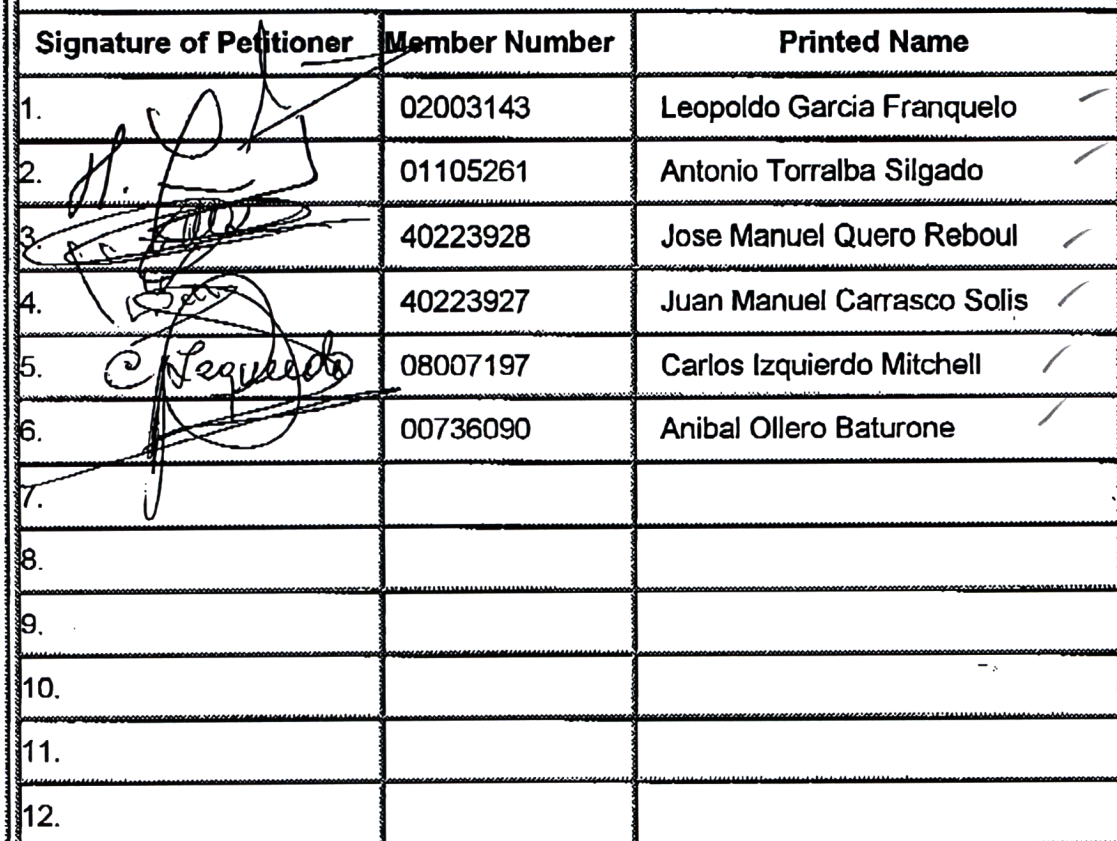 Signature of Petitioner Member Number Printed Name
1. 02003143 Leopoldo Garcia Franquelo
2. 01105261 Antonio Torralba Silgado
3. 40223928 Jose Manuel Quero Reboul
4. 40223927 Juan Manuel Carrasco Solis
5. C. Izquierdo 08007197 Carlos Izquierdo Mitchell
6. 00736090 Anibal Ollero Baturone
7.
8.
9.
10.
11.
12.